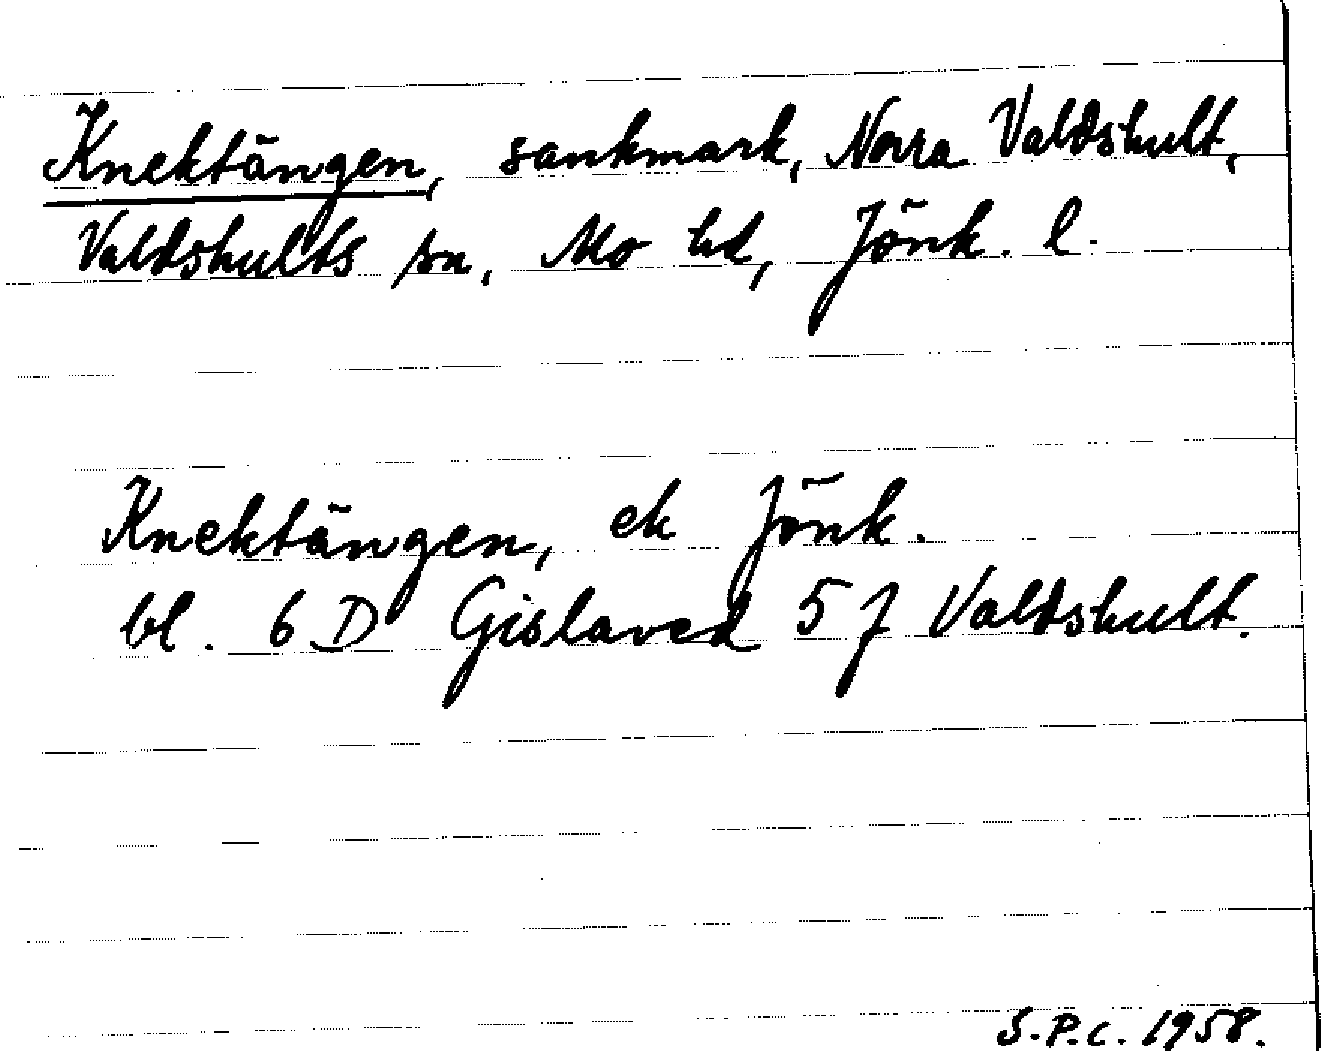 Knektängen, sankmark, Norra Valdshult,
Valdshults sn, Mo hd, Jönk. l.
Knektängen, ek Jönk.
bl. 6 D Gislaved 5 j Valdshult.
S.P.C. 1958.